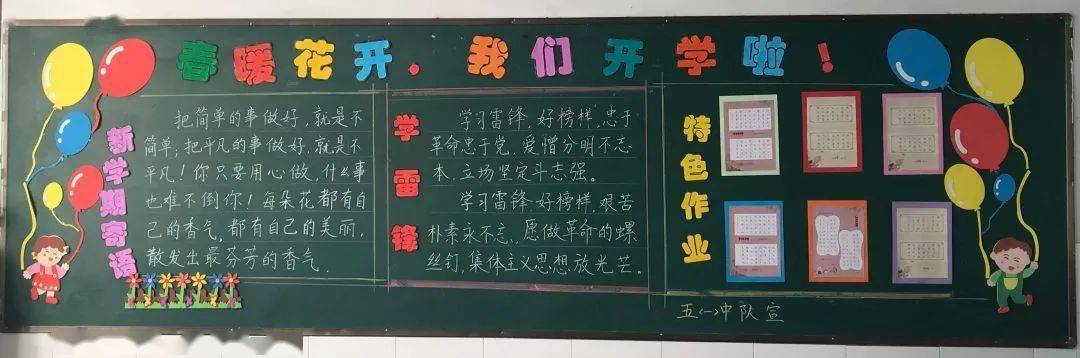 春暖花开.我们开学啦!
新学期寄语
把简单的事做好,就是不
简单;把平凡的事做好,就是不
平凡!你只要用心做,什么事
也难不倒你!每朵花都有自
己的香气,都有自己的美丽.
散发出最芬芳的香气.
学雷锋
学习雷锋,好榜样,忠于
革命忠于党,爱憎分明不忘
本,立场坚定斗志强。
学习雷锋,好榜样,艰苦
朴素永不忘,愿做革命的螺
丝钉,集体主义思想放光芒。
特色作业
五〈一〉中队宣